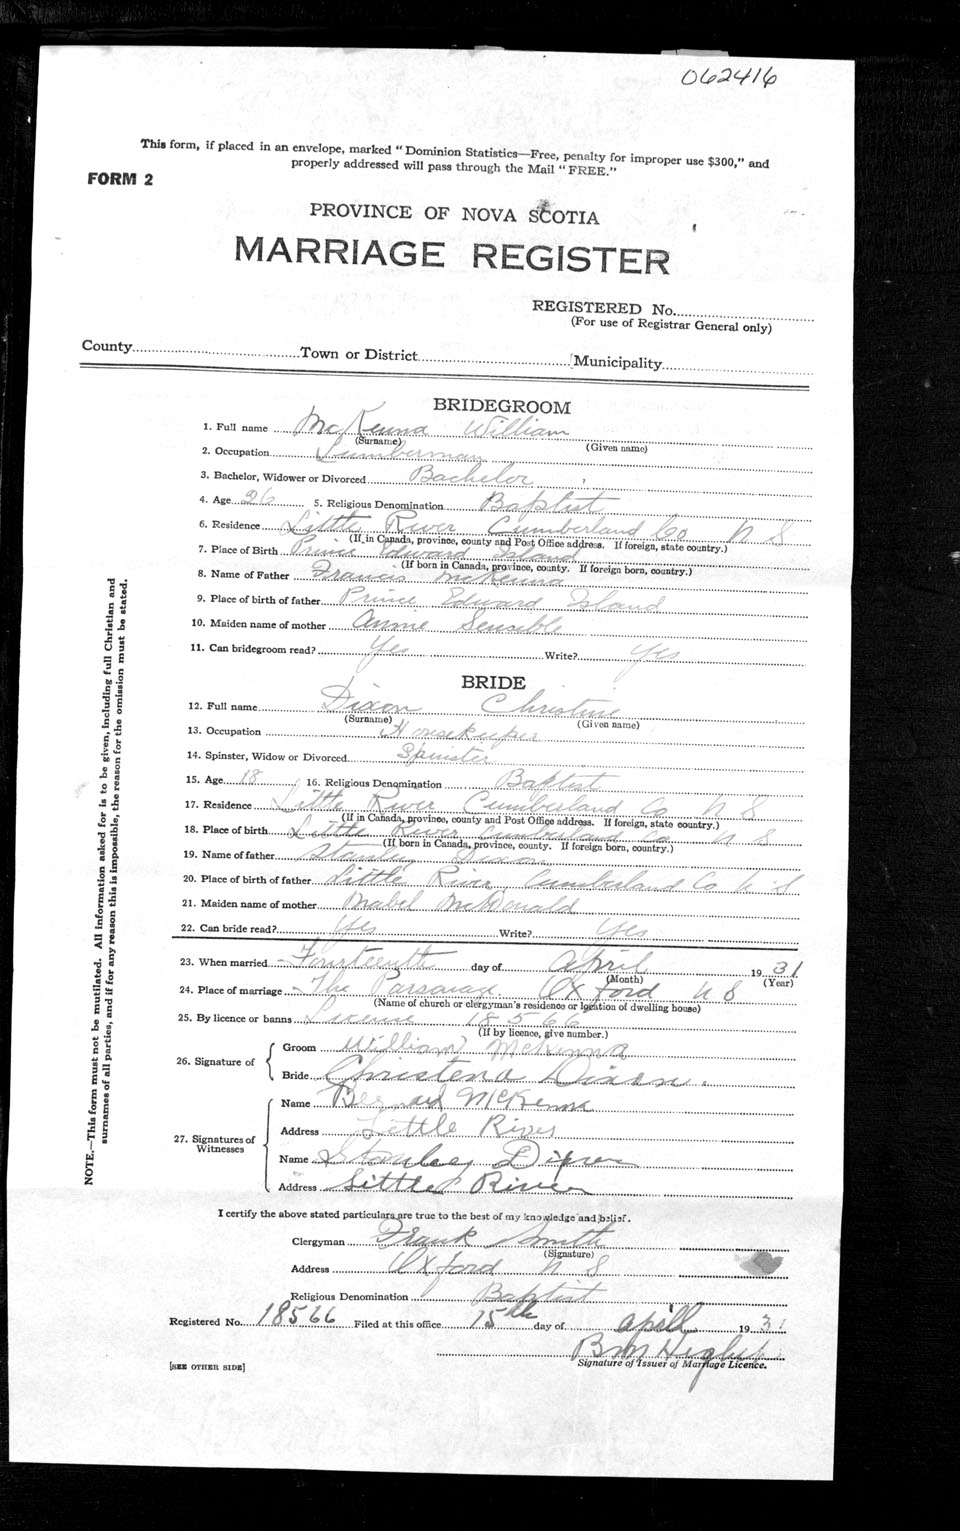 062416
This form, if placed in an envelope, marked "Dominion Statistics—Free, penalty for improper use $300," and
properly addressed will pass through the Mail "FREE."
FORM 2
PROVINCE OF NOVA SCOTIA
MARRIAGE REGISTER
REGISTERED No.
(For use of Registrar General only)
County Town or District Municipality
BRIDEGROOM
1. Full name McKenna William
(Surname) (Given name)
2. Occupation Lumberman
3. Bachelor, Widower or Divorced Bachelor
4. Age 26 5. Religious Denomination Baptist
6. Residence Little River Cumberland Co N S
(If in Canada, province, county and Post Office address. If foreign, state country.)
7. Place of Birth Prince Edward Island
(If born in Canada, province, county. If foreign born, country.)
8. Name of Father Francis McKenna
9. Place of birth of father Prince Edward Island
10. Maiden name of mother Annie Sensible
11. Can bridegroom read? Yes Write? Yes
BRIDE
12. Full name Dixon Christine
(Surname) (Given name)
13. Occupation Housekeeper
14. Spinster, Widow or Divorced Spinster
15. Age 18 16. Religious Denomination Baptist
17. Residence Little River Cumberland Co N S
(If in Canada, province, county and Post Office address. If foreign, state country.)
18. Place of birth Little River Cumberland Co N S
(If born in Canada, province, county. If foreign born, country.)
19. Name of father Stanley Dixon
20. Place of birth of father Little River Cumberland Co N S
21. Maiden name of mother Mabel McDonald
22. Can bride read? Yes Write? Yes
23. When married Fourteenth day of April 1931
(Month) (Year)
24. Place of marriage The Parsonage Oxford N S
(Name of church or clergyman's residence or location of dwelling house)
25. By licence or banns License 18566
(If by licence, give number.)
26. Signature of
Groom William McKenna
Bride Christena Dixon.
27. Signatures of
Witnesses
Name Bernard McKenna
Address Little River
Name Stanley Dixon
Address Little River
I certify the above stated particulars are true to the best of my knowledge and belief.
Clergyman Frank Smith
(Signature)
Address Oxford N S
Religious Denomination Baptist
Registered No. 18566 Filed at this office 15th day of april 1931
B M
Signature of Issuer of Marriage Licence.
[SEE OTHER SIDE]
NOTE.—This form must not be mutilated. All information asked for is to be given, including full Christian and
surnames of all parties, and if for any reason this is impossible, the reason for the omission must be stated.